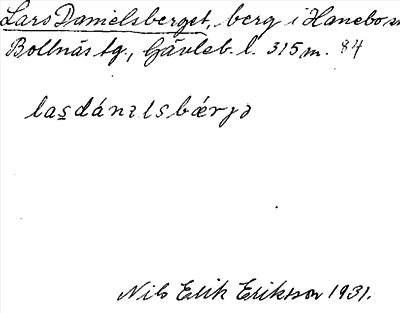 Lars Danielsberget, berg i Hanebo sn
Bollnäs tg., Gävleb. l. 315 m. 84
las̲dánɪlsbǽrjə
Nils Erik Eriksson 1931.